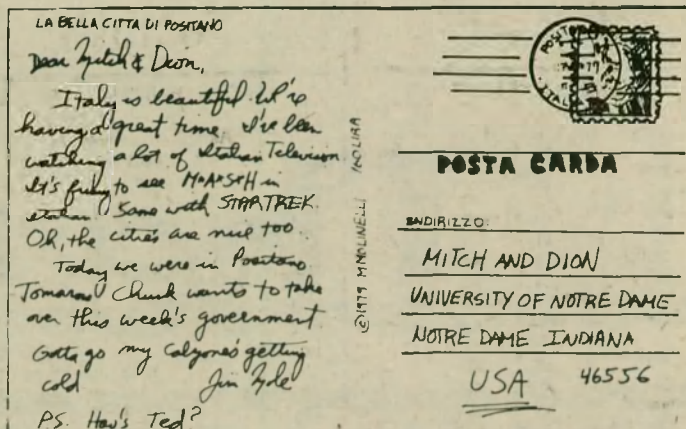 LA BELLA CITTA DI POSITANO
Dear Mitch & Dion,
Italy is beautiful. We're
having a great time. I've been
watching a lot of Italian Television
It's funny to see M*A*S*H in
Italian. Same with STAR TREK.
Oh, the cities are nice too.
Today we were in Positano.
Tomarow Chuck wants to take
over this week's government
Gotta go my calzone's getting
cold Jim
P.S. How's Ted?
©1979
POSTA CARDA
INDIRIZZO:
MITCH AND DION
UNIVERSITY OF NOTRE DAME
NOTRE DAME INDIANA
USA 46556